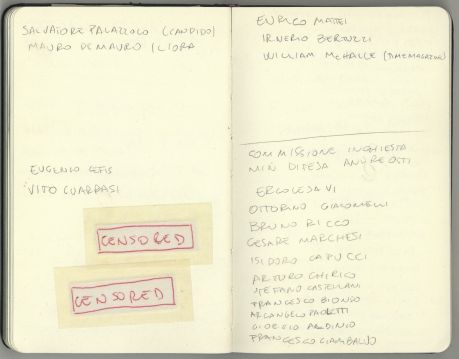 SALVATORE PALAZZOLO (CANDIDO)
MAURO DE MAURO (L'ORA
EUGENIO CEFIS
VITO GUARRASI
CENSORED
CENSORED
ENRICO MATTEI
IRNERIO BERTUZZI
WILLIAM McHALE (TIME MAGAZINE)
COMMISSIONE INCHIESTA
MIN DIFESA ANDREOTTI
ERCOLE SAVI
OTTORINO GIACOMELLI
BRUNO RICCO
CESARE MARCHESI
ISIDORO CAPUCCI
ARTURO CHIRICO
STEFANO CASTELLANI
FRANCESCO BIONDO
ARCANGELO PAOLETTI
GIORGIO ALDINIO
FRANCESCO GIAMBALVO